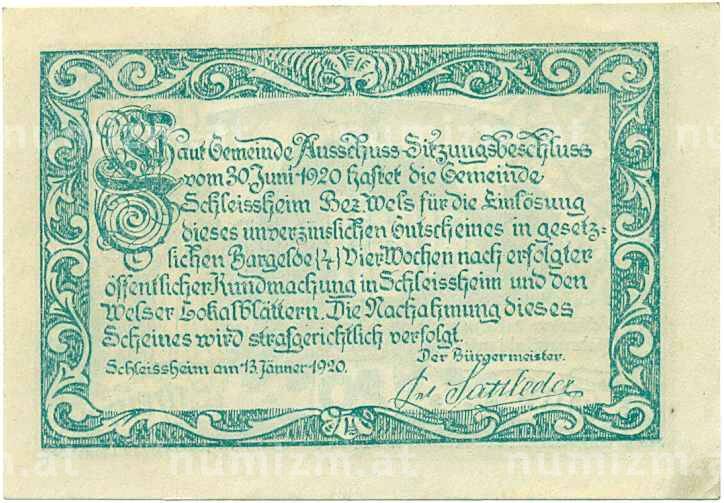 Laut Gemeinde Ausschuss-Sitzungsbeschluss
vom 30 Juni 1920 haftet die Gemeinde
Schleissheim Bez Wels für die Einlösung
dieses unverzinslichen Gutscheines in gesetz-
lichen Bargelde (4) Vier Wochen nach erfolgter
öffentlicher Kundmachung in Schleissheim und den
Welser Lokalblättern. Die Nachahmung dieses
Scheines wird strafgerichtlich verfolgt.
Schleissheim am 13. Jänner 1920.
Der Bürgermeister.
Sattleder
numizm.at